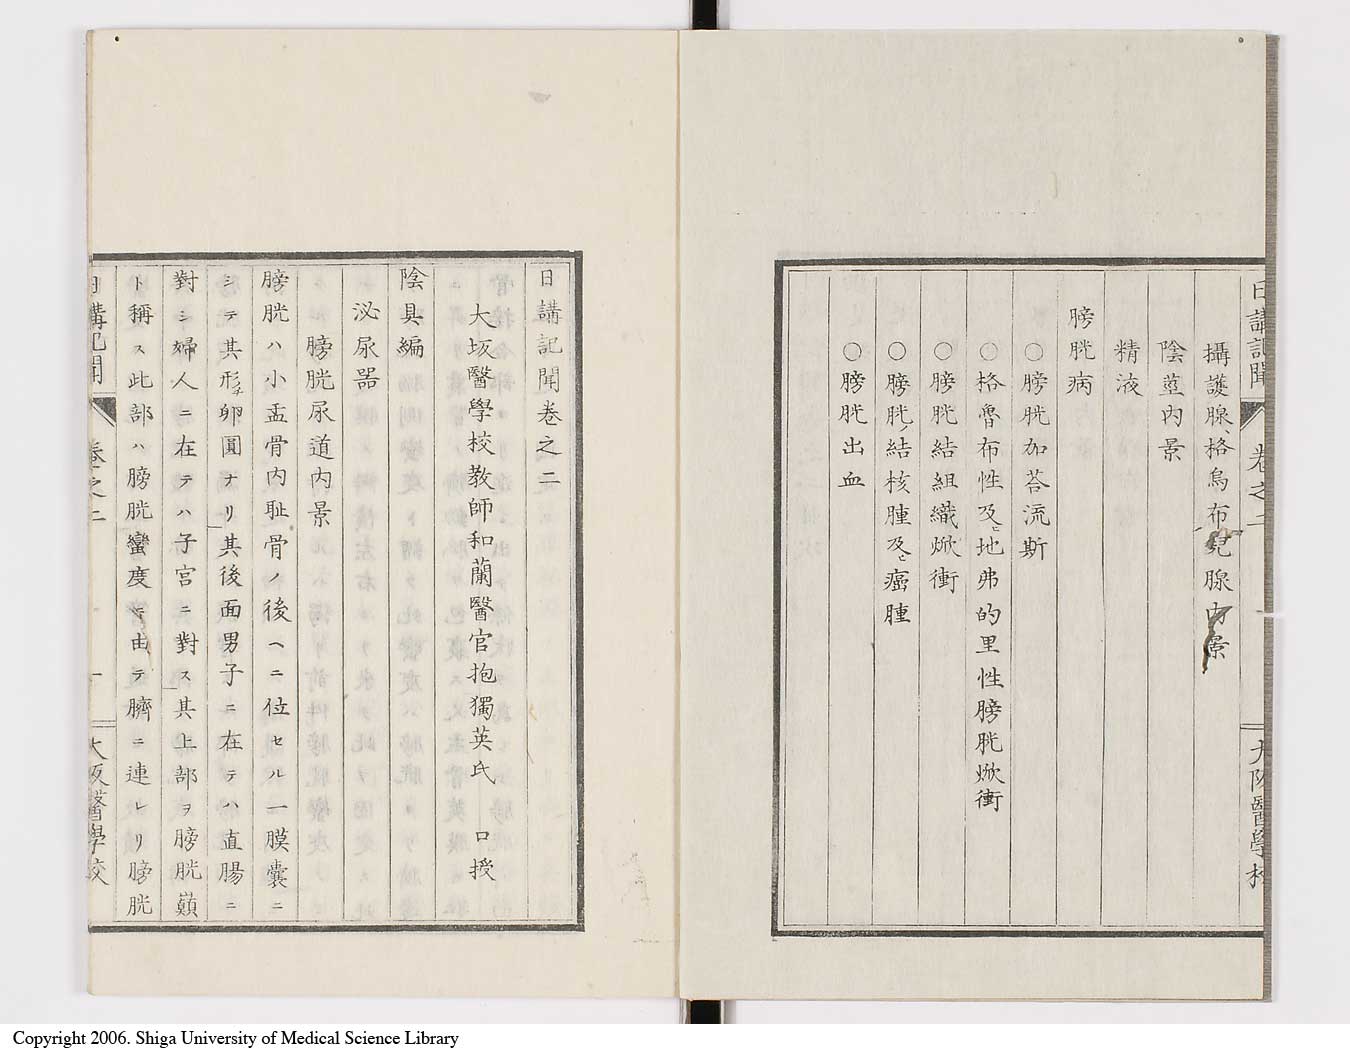 日講記聞 卷之二 大阪醫學校
攝護腺、格烏布兒腺内景
陰莖内景
精液
膀胱病
〇膀胱加荅流斯
〇格魯布性及ヒ地弗的里性膀胱焮衝
〇膀胱結組織焮衝
〇膀胱ノ結核腫及ヒ癌腫
〇膀胱出血
日講記聞卷之二
大坂醫學校教師和蘭醫官抱獨英氏 口授
陰具編
泌尿器
膀胱尿道内景
膀胱ハ小盂骨内耻骨ノ後ヘニ位セル一膜囊ニ
シテ其形チ卵圓ナリ其後面男子ニ在テハ直腸ニ
對シ婦人ニ在テハ子宮ニ對ス其上部ヲ膀胱巓
ト稱ス此部ハ膀胱蠻度ニ由テ臍ニ連レリ膀胱
日講記聞 卷之二 一 大阪醫學校
Copyright 2006. Shiga University of Medical Science Library